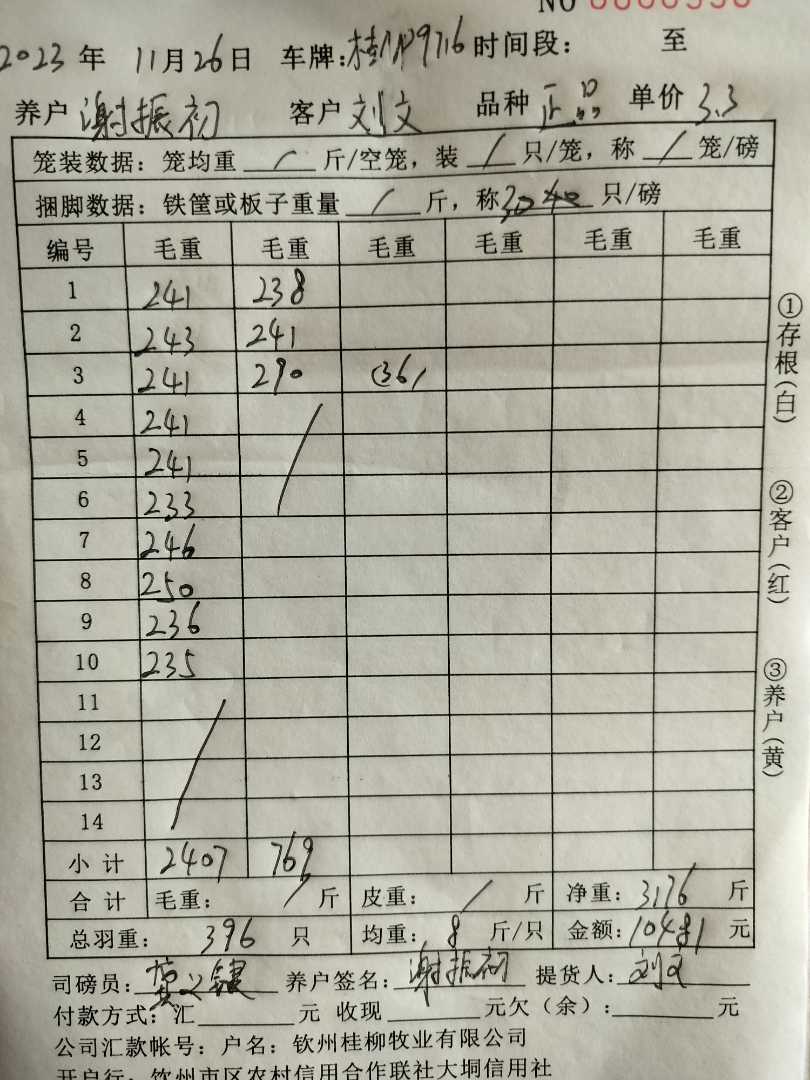 NO 0000336
2023年 11月26日 车牌:桂 P9716 时间段: 至
养户 谢振初 客户 刘文 品种 正品 单价 3.3
笼装数据: 笼均重 / 斤/空笼, 装 / 只/笼, 称 / 笼/磅
捆脚数据: 铁筐或板子重量 / 斤, 称 30 40 只/磅
编号 毛重 毛重 毛重 毛重 毛重 毛重
1 241 238
2 243 241
3 241 290 (36/
4 241
5 241
6 233
7 246
8 250
9 236
10 235
11
12
13
14
小计 2407 769
合计 毛重: / 斤 皮重: / 斤 净重: 3176 斤
总羽重: 396 只 均重: 8 斤/只 金额: 10481 元
司磅员: 养户签名: 谢振初 提货人: 刘文
付款方式: 汇 元 收现 元欠(余): 元
公司汇款帐号: 户名: 钦州桂柳牧业有限公司
开户行: 钦州市区农村信用合作联社大垌信用社
①存根(白)
②客户(红)
③养户(黄)